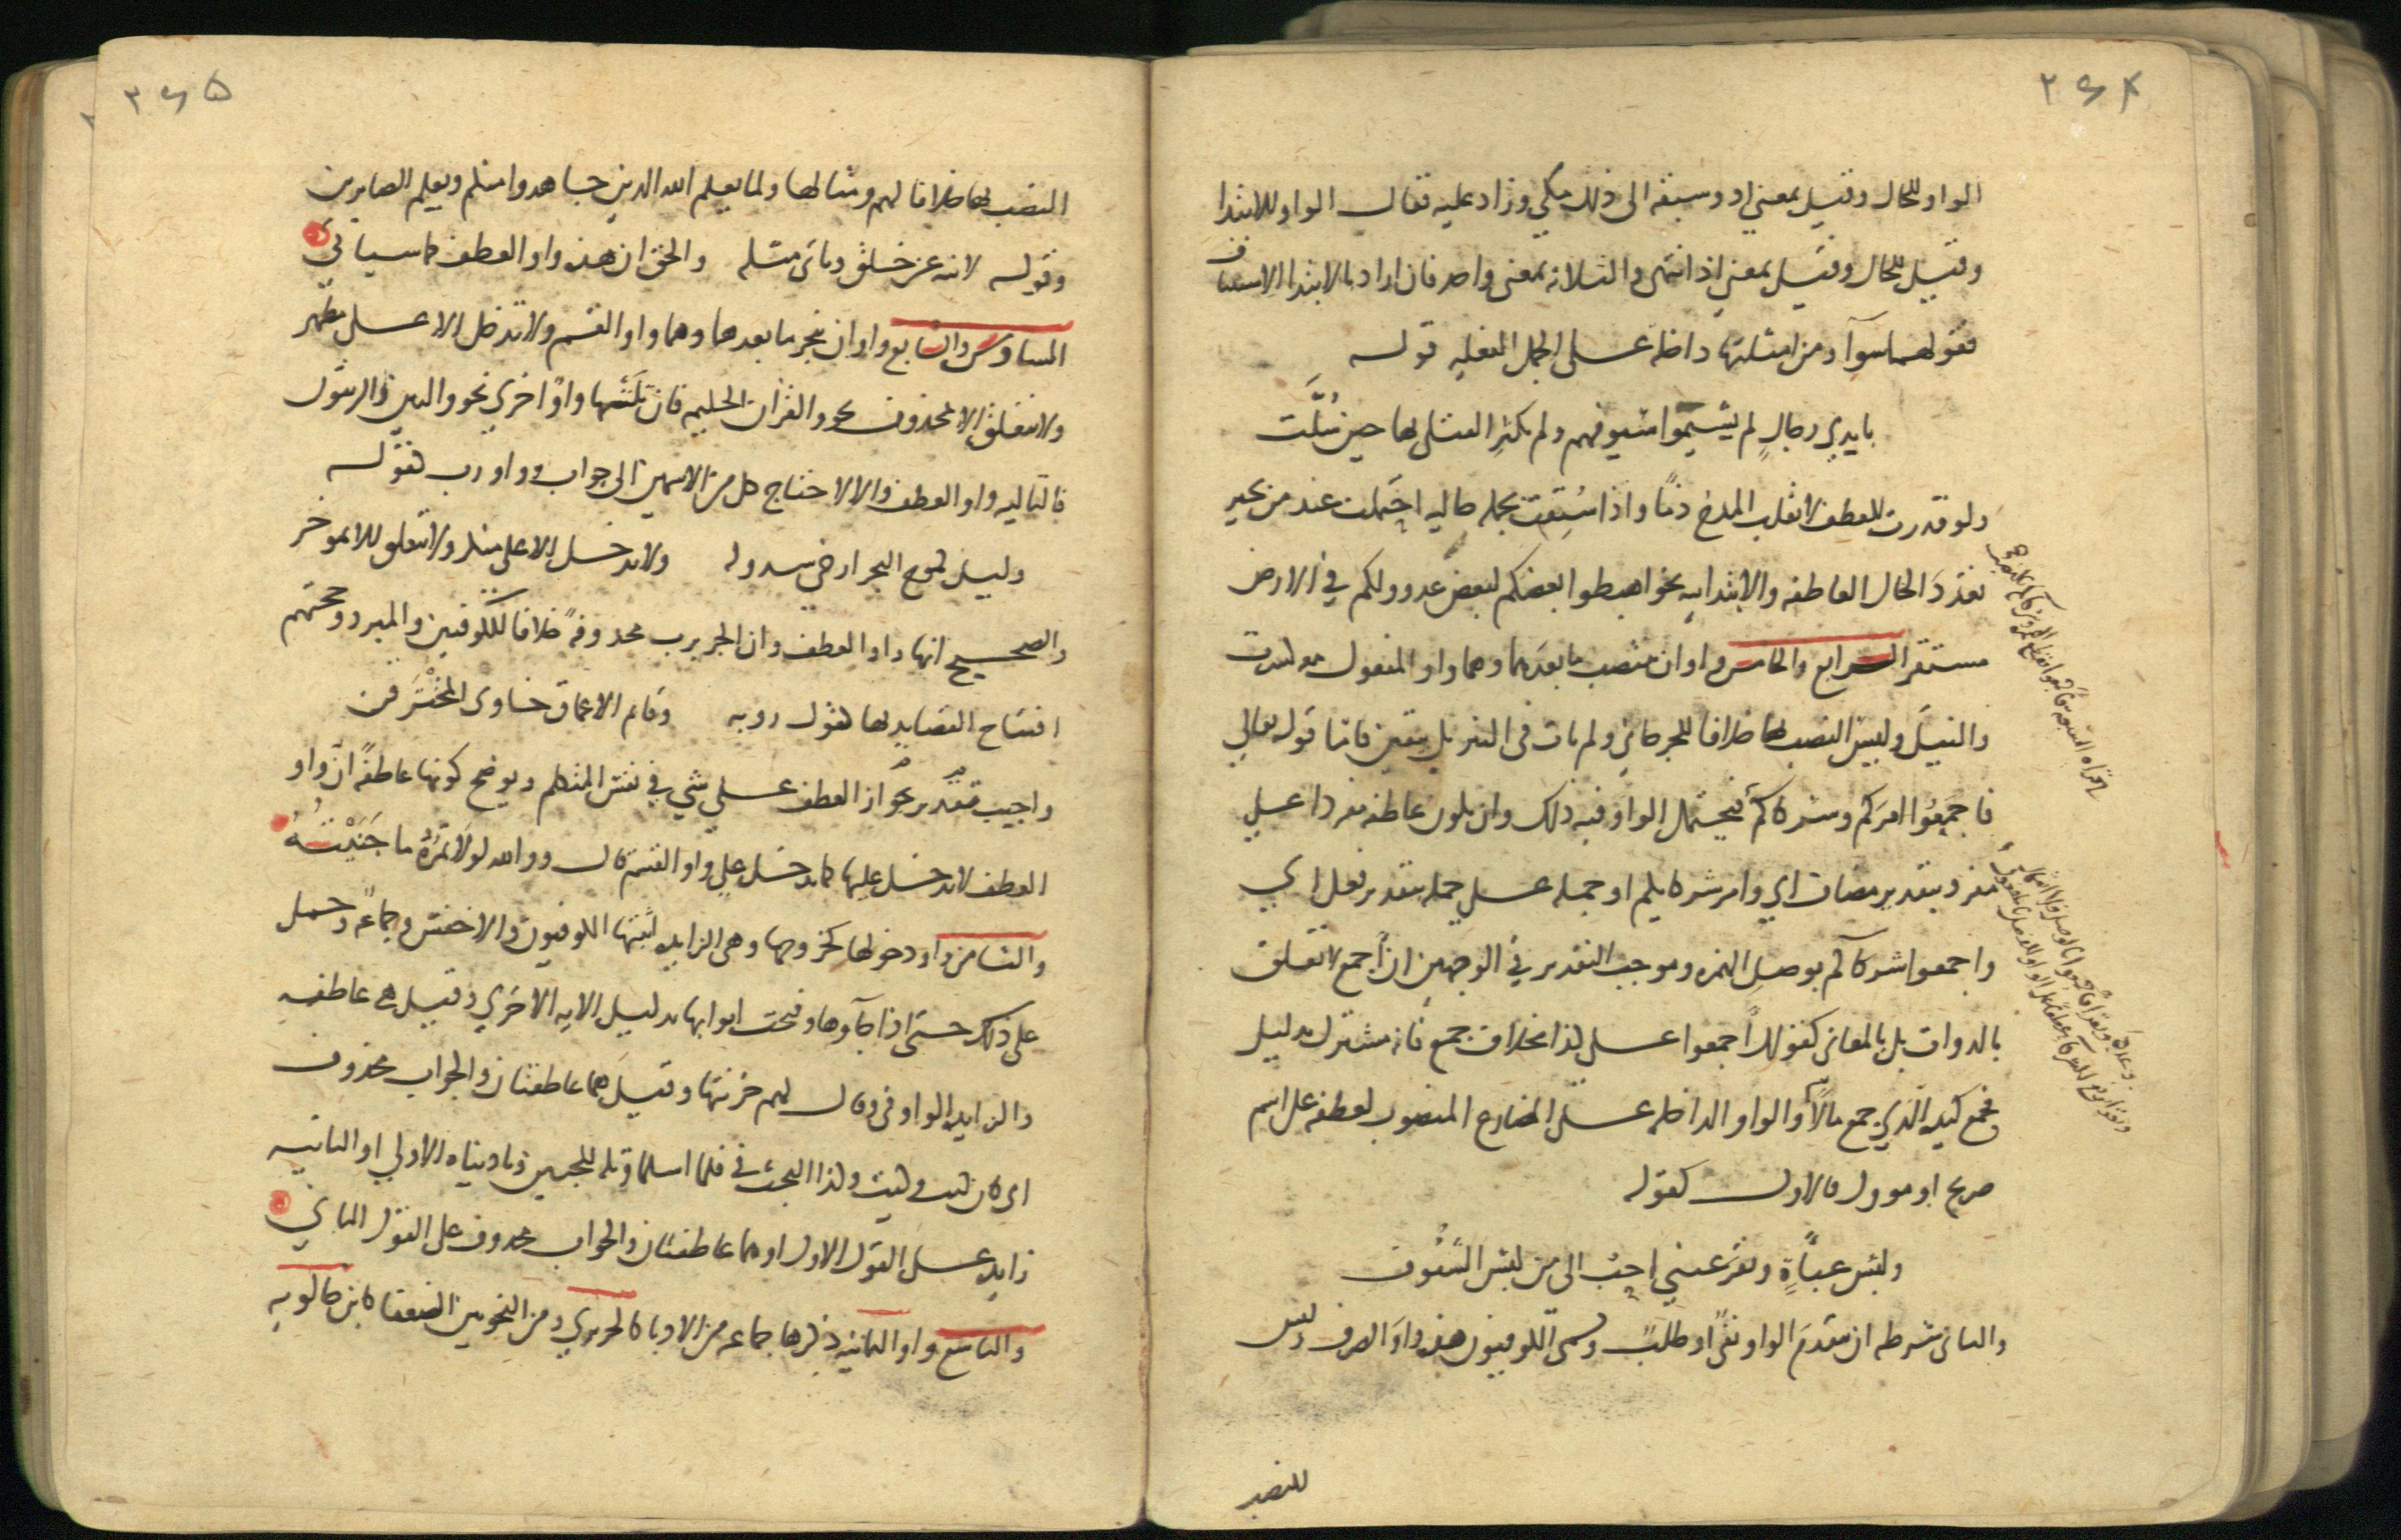 ٢٦٤
الواو للحال وقيل بمعني اذ وسبقه الى ذلك مكي وزاد عليه فقال الواو للابتدا
وقيل للحال وقيل بمعني اذ انتهى والثلاثة بمعنى واحد فان اراد بالابتدا الاستيناف
فقولهما سوآ ومن امثلتها داخلة على الجمل الفعليه قوله
بايدي رجالٍ لم يشيموا سيوفهم ولم تكثرِ القتلى بها حين سُلَّت
ولو قدرت للعطف لانقلب المدح ذمًا واذا سُبقت بجمله حاليه احتملت عند من يجيز
تعدد الحال العاطفه والابتدائيه نحو اهبطوا بعضكم لبعض عدو ولكم في الارض
مستقر الرابع والخامس واوان ينتصب ما بعدهما وهما واو المفعول معه كسرت
والنيل وليس النصب بها خلافا للجرجاني ولم يات في التنزيل بيقين فاما قوله تعالي
فاجمعُوا امرَكم وشركاكم فيحتمل الواو فيه ذلك وان تكون عاطفه مفردا علي
مفرد بتقدير مضاف اي وامر شركايكم او جمله على جمله بتقدير فعل اي
واجمعوا شركآكم بوصل الهمزه وموجب التقدير في الوجهين ان أجمع لا تتعلق
بالذوات بل بالمعاني كقولك أجمعوا على كذا بخلاف جمع فانه مشترك بدليل
فجمع كيده الذي جمع مالاً والواو الداخله على المضارع المنصوب لعطفه على اسم
صريح او موول فالاول كقوله
ولبس عباءةٍ وتقر عيني احب الى من لبس الشفُوف
والثاني شرطه ان يتقدم الواو نفيٌ او طلبٌ وسمى الكوفيون هذه واو الصرف وليس
للنصب
٢٦٥
النصب بها خلافا لهم ومثالها ولما يعلم الله الذين جاهدوا منكم ويعلم الصابرين
وقوله لا تنه عن خلق وتاتى مثله والحق ان هذه واو العطف كما سياتي
السادس والسابع واوان ينجر ما بعدهما وهما واو القسم ولا تدخل الا على مظهر
ولا تتعلق الا بمحذوف نحو والقران الحكيم فان تلتها واوٌ اخري نحو والتين والزيتون
فالتاليه واو العطف والا لاحتاج كل من الاسمين الى جواب وواو رب كقوله
وليل كموج البحر ارخى سدوله ولا تدخل الا على منكر ولا تتعلق الا بموخر
والصحيح انها واو العطف وان الجر برب محذوفةً خلافا للكوفيين والمبرد وحجتهم
افتتاح القصايد بها كقول روبه وقاتم الاعماق خاوى المخترقن
واجيب بتقدير جواز العطف على شي في نفس المتكلم ويوضح كونها عاطفةً ان واو
العطف لا تدخل عليها كما تدخل على واو القسم قال ووالله لولا تمرُه ما حببتُهُ
والثامن واو دخولها كخروجها وهى الزايده اثبتها الكوفيون والاخفش وجماعة وحمل
على ذلك حتى اذا جآوها وفتحت ابوابها بدليل الايه الاخري وقيل هى عاطفه
والزايده الواو في وقال لهم خزنتها وقيل هما عاطفتان والجواب محذوف
اى كان كيت وكيت وكذا البحث في فلما اسلما وتله للجبين وناديناه الاولي او الثانيه
زايده على القول الاول او هما عاطفتان والجواب محذوف على القول الثاني
والتاسع واو الثمانيه ذكرها جماعه من الادبا كالحريري ومن النحويين الضعفا كابن خالويه